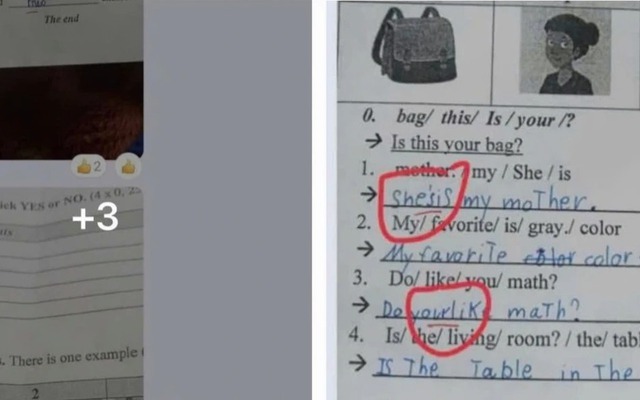 this
The end
2
ick YES or NO. (4 x 0, 2
+3
. There is one example
2
0. bag/ this/ Is / your /?
→ Is this your bag?
1. mother. / my / She / is
→ She'sis my moTher.
2. My/ favorite/ is/ gray./ color
→ My favoriTe color color
3. Do/ like/ you/ math?
→ Do yourlik maTh?
4. Is/ the/ living/ room? / the/ tab
→ Is The Table in The